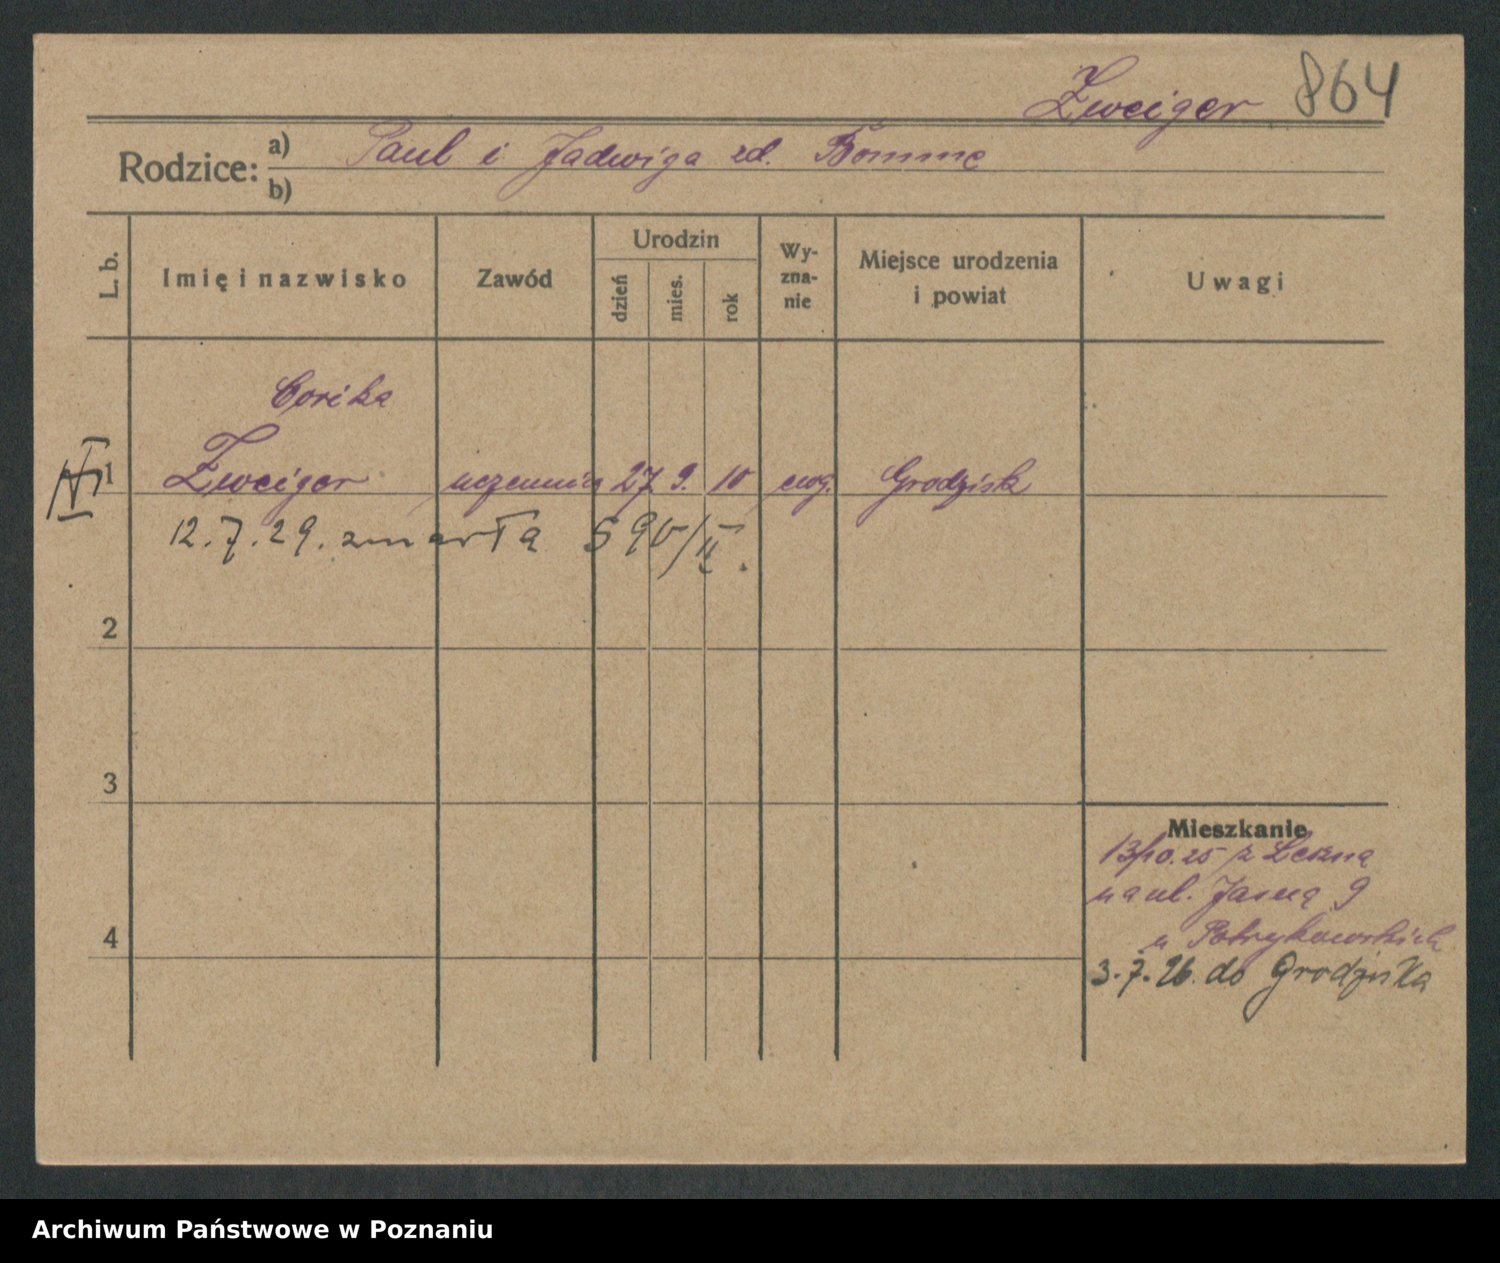 Zweiger 864
Rodzice: a) Paul i Jadwiga zd. Bömme
b)
L. b. Imię i nazwisko Zawód Urodzin dzień mies. rok Wy-zna-nie Miejsce urodzenia i powiat Uwagi
1 Zweiger uczennica 27 9. 10 ewg. Grodzisk
12.7.29. zmarła 590/II.
2
3
Mieszkanie
13/10.25 z Leszna
na ul. Jasną 9
4 u Potrykowskich
3.7.26. do Grodziska
Archiwum Państwowe w Poznaniu